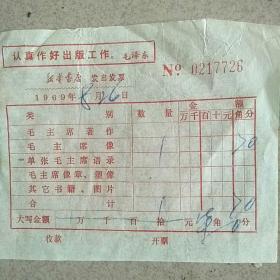 认真作好出版工作。毛泽东
新华书店 发出发票 No 0217726
1969年8月26日
类别 数量 金额
万千百十元角分
毛主席著作
毛主席像 1 70
单张毛主席语录
毛主席像章、塑像
其它书籍、图片
合计 1 70
大写金额 万 千 百 拾 元 角 分
收款 开票